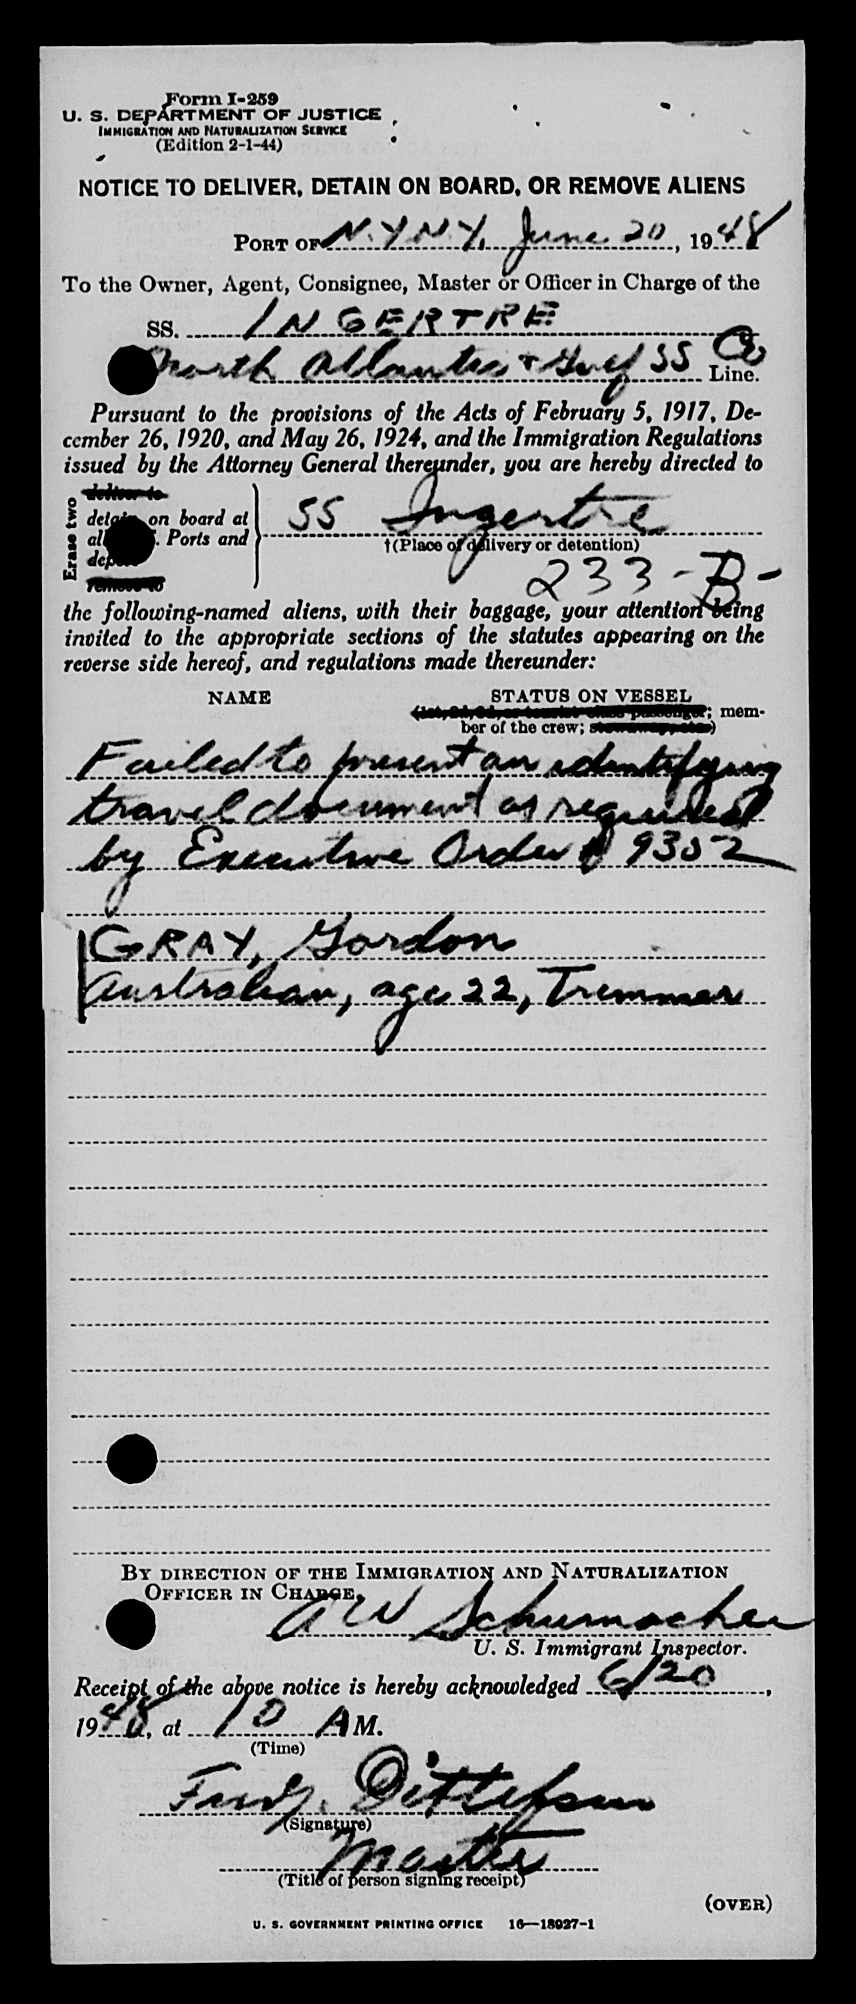 Form I-259
U. S. DEPARTMENT OF JUSTICE
IMMIGRATION AND NATURALIZATION SERVICE
(Edition 2-1-44)
NOTICE TO DELIVER, DETAIN ON BOARD, OR REMOVE ALIENS
PORT OF N.Y. N.Y. June 20, 1948
To the Owner, Agent, Consignee, Master or Officer in Charge of the
SS. INGERTRE
North Atlantic & Gulf SS Co Line.
Pursuant to the provisions of the Acts of February 5, 1917, De-
cember 26, 1920, and May 26, 1924, and the Immigration Regulations
issued by the Attorney General thereunder, you are hereby directed to
Erase two
deliver to
detain on board at
all Ports and
deport
remove to
SS Ingertre
†(Place of delivery or detention)
233-B-
the following-named aliens, with their baggage, your attention being
invited to the appropriate sections of the statutes appearing on the
reverse side hereof, and regulations made thereunder:
NAME STATUS ON VESSEL
(1st, 2d, 3d, or tourist class passenger; mem-
ber of the crew; stowaway, etc.)
Failed to present an identifying
travel document as required
by Executive Order 9352
GRAY, Gordon
Australian, age 22, Trimmer
BY DIRECTION OF THE IMMIGRATION AND NATURALIZATION
OFFICER IN CHARGE,
A W Schumacher
U. S. Immigrant Inspector.
Receipt of the above notice is hereby acknowledged 6/20,
1948, at 10 AM.
(Time)
Dittefsen
(Signature)
Master
(Title of person signing receipt)
(OVER)
U. S. GOVERNMENT PRINTING OFFICE 16—18927-1